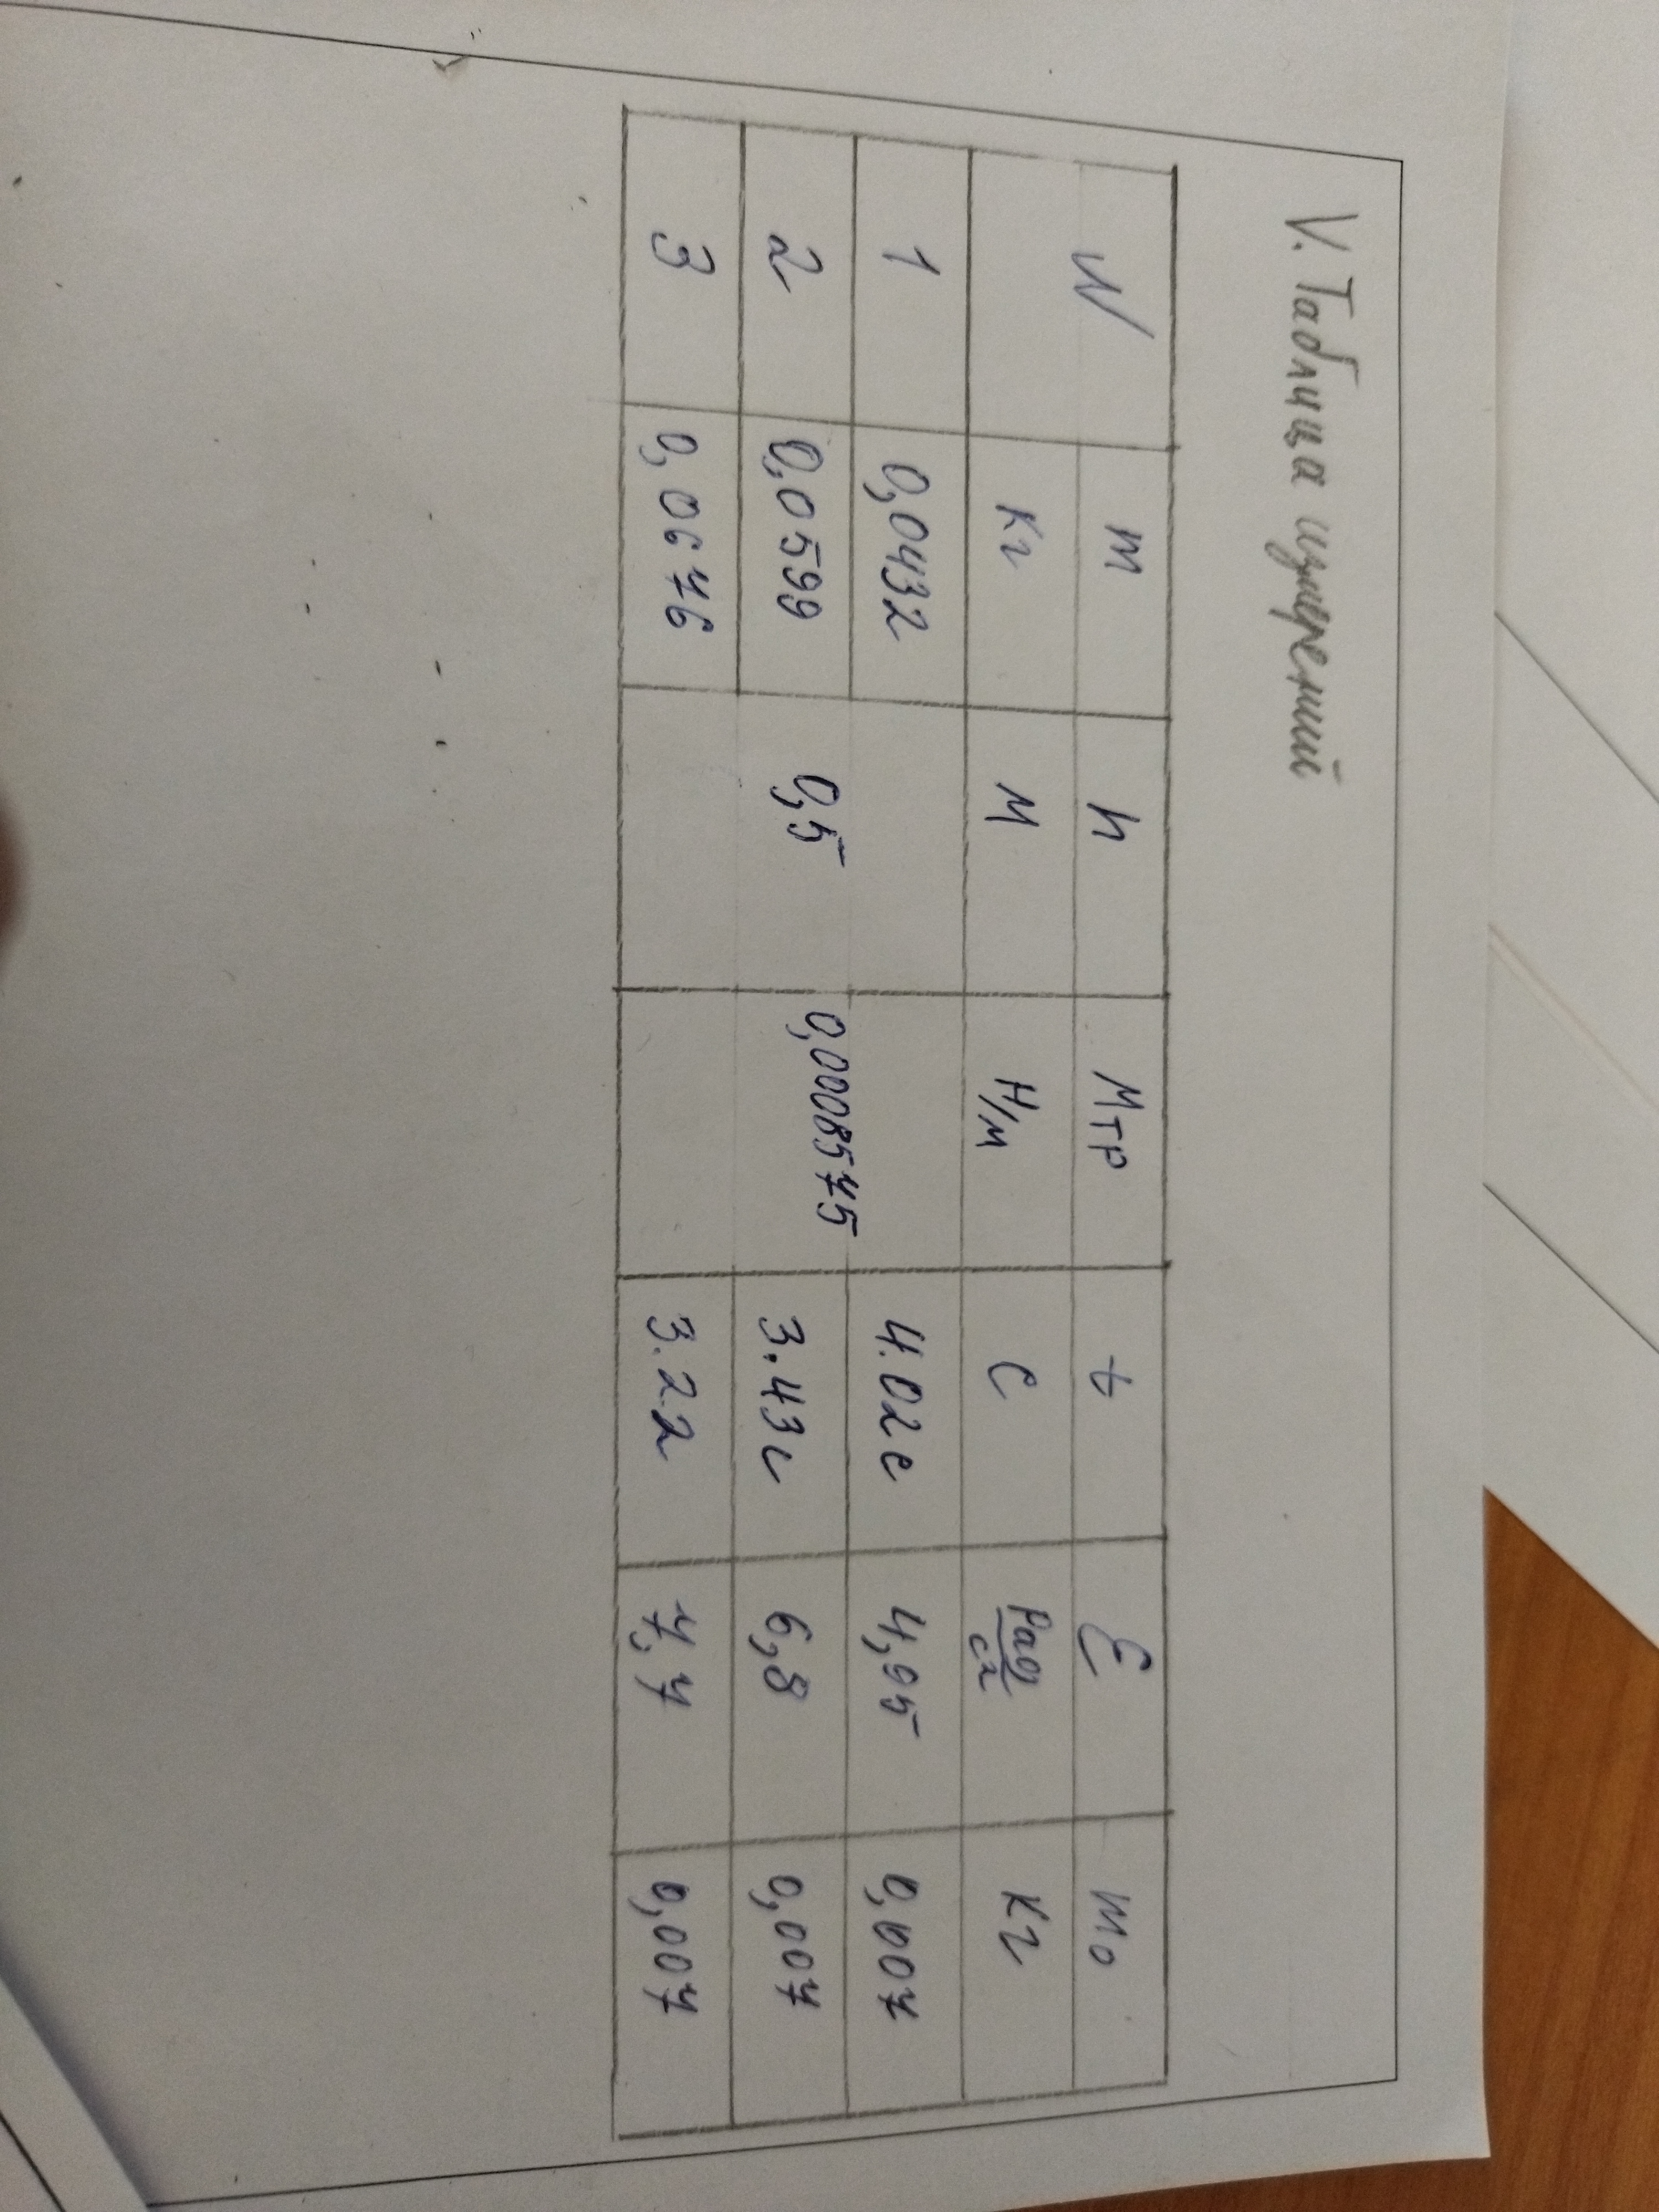 V. Таблица измерений
N m h Mтр t ℰ m₀
кг м Н/м с Рад/с² кг
1 0,0432 4.02с 4,95 0,007
2 0,0599 0,5 0,0008575 3.43с 6,8 0,007
3 0,0676 3.22 7,7 0,007